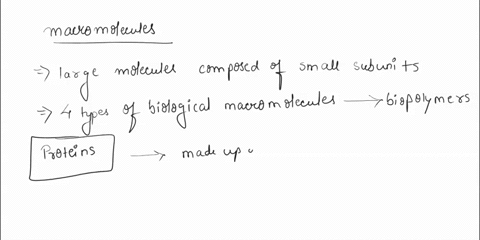 macromolecules
⇒ large molecules composed of small subunits
⇒ 4 types of biological macromolecules ⟶ biopolymers
Proteins ⟶ made up